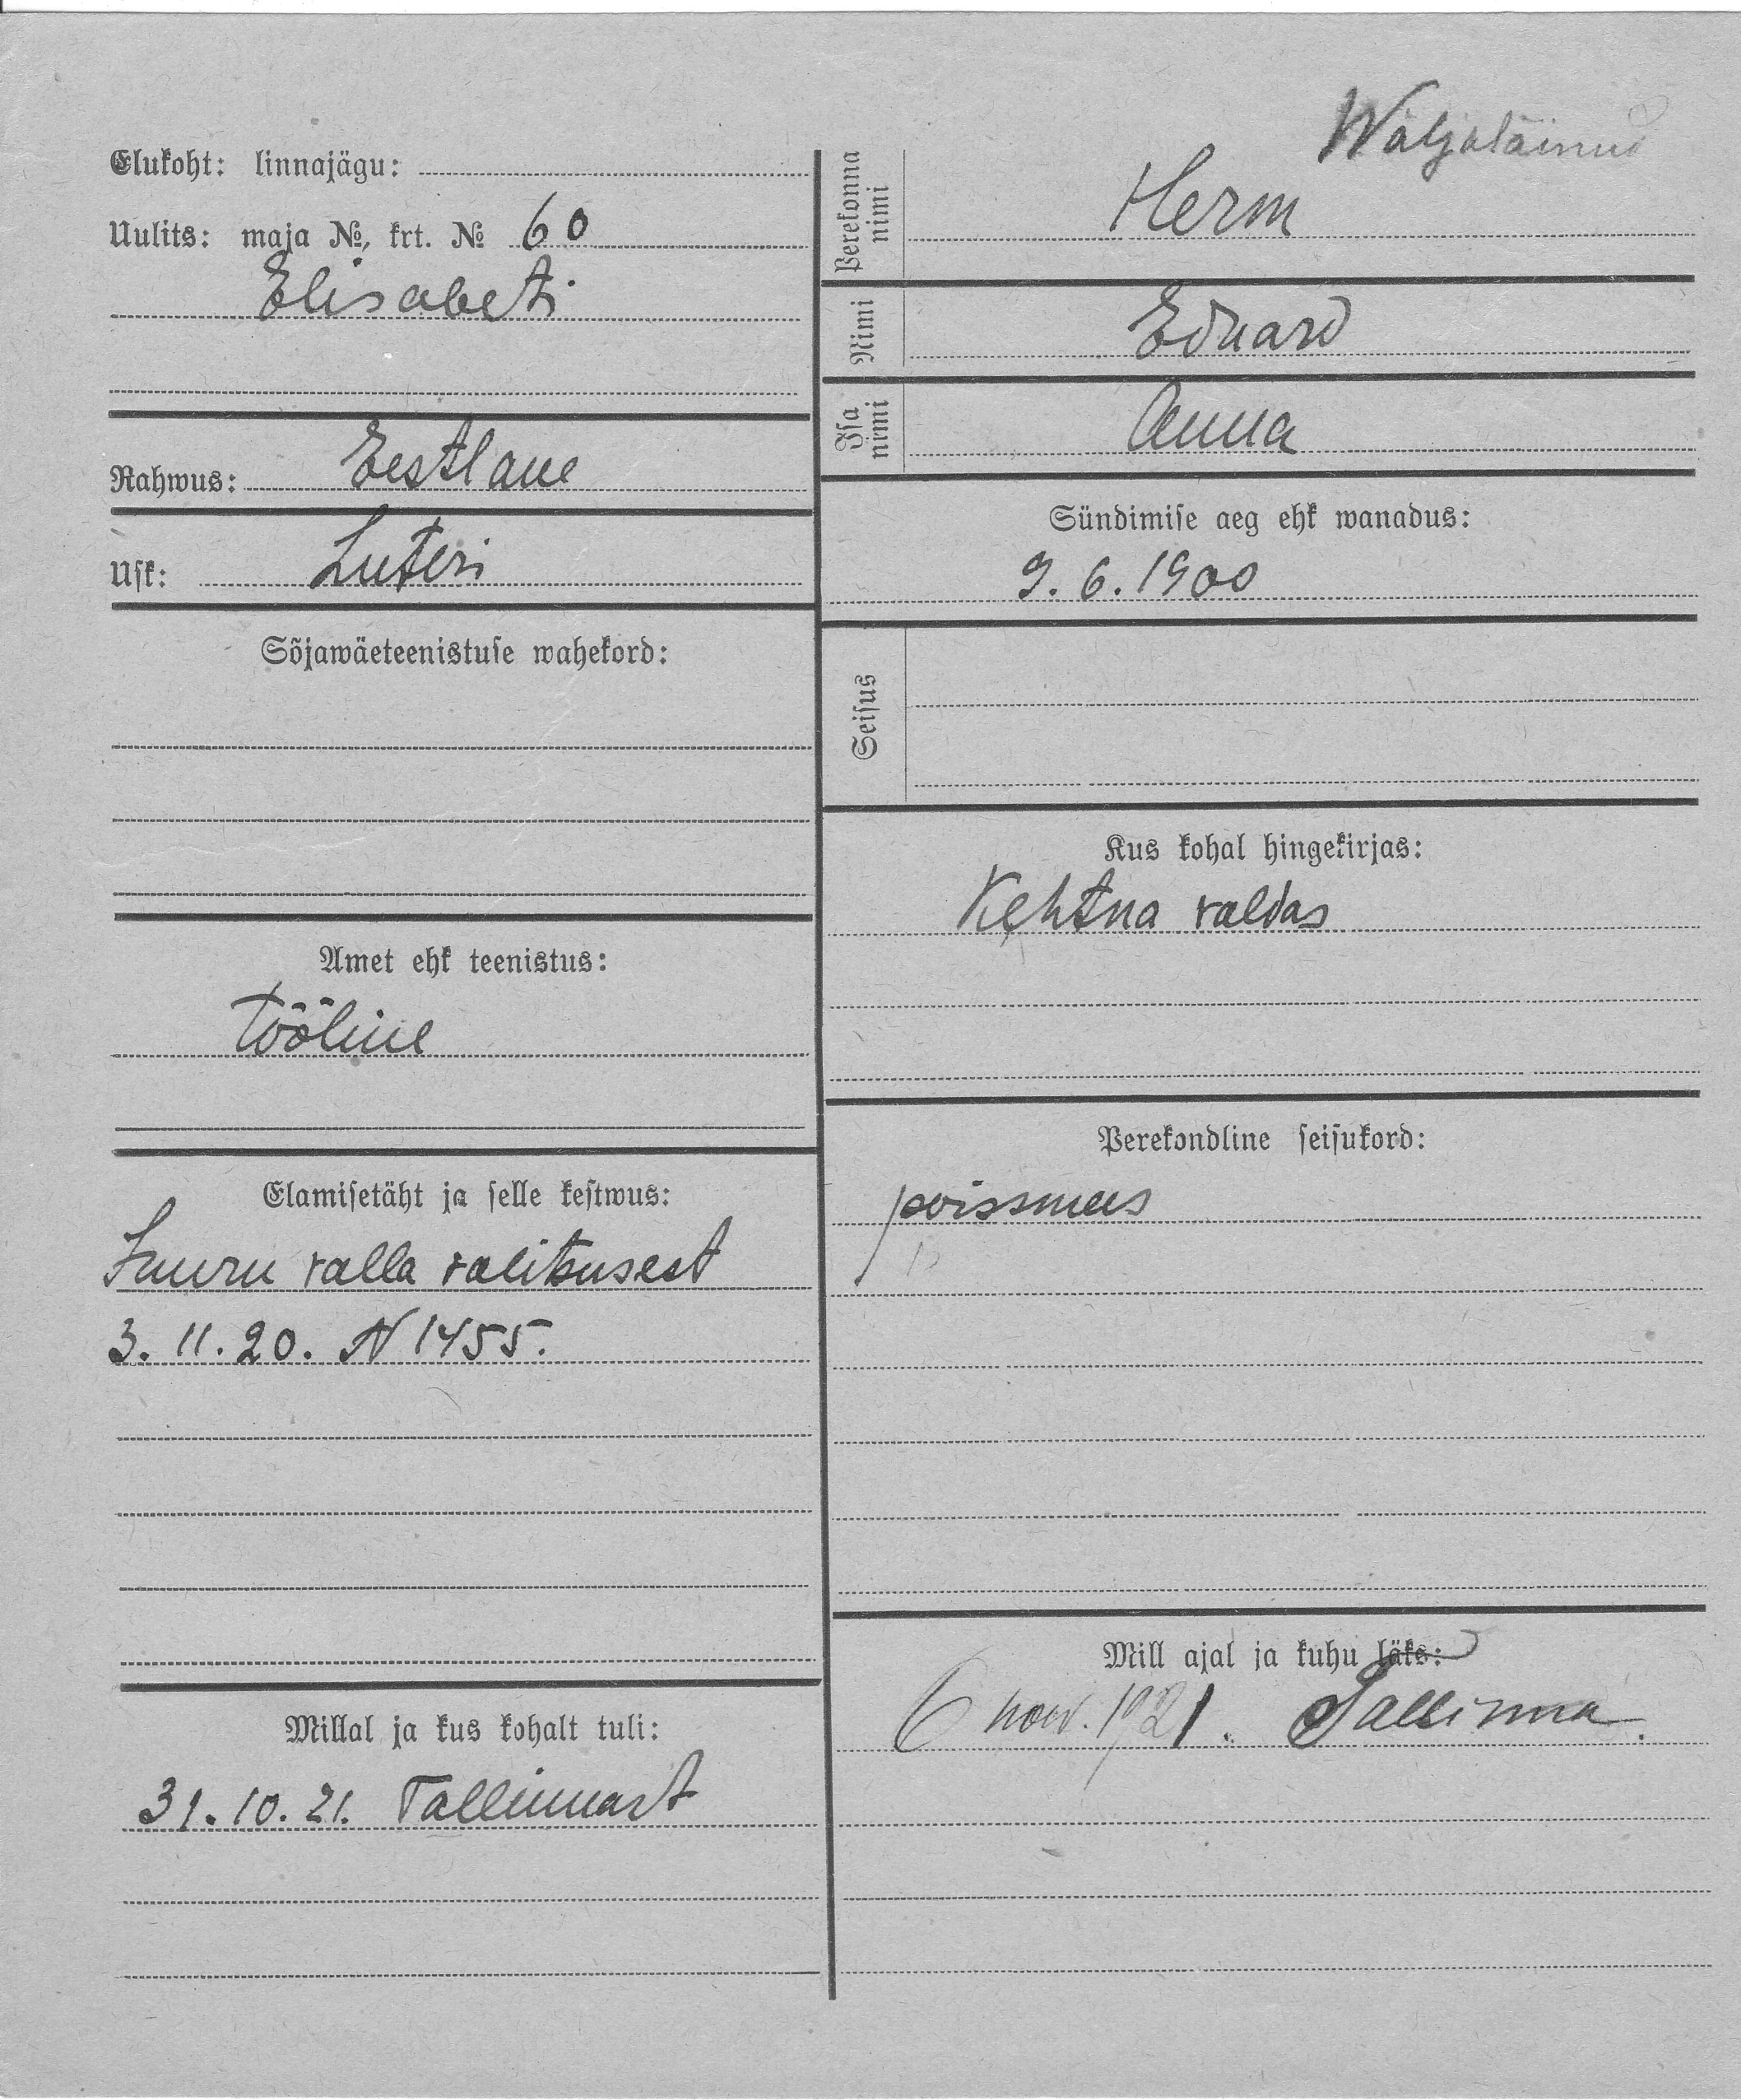 Elukoht: linnajägu:
Uulits: maja №, krt. № 60
Elisabeti
Rahwus: Eestlane
Usk: Luteri
Sõjawäeteenistuse wahekord:
Amet ehk teenistus:
tööline
Elamisetäht ja selle kestwus:
valla valitsusest
3. 11. 20. N 1455.
Millal ja kus kohalt tuli:
31. 10. 21. Tallinnast
Wäljaläinud
Perekonna nimi Herm
Nimi Eduard
Isa nimi Anna
Sündimise aeg ehk wanadus:
9. 6. 1900
Seisus
Kus kohal hingekirjas:
Kehtna valdas
Perekondline seisukord:
poissmees
Mill ajal ja kuhu läks:
6 now. 1921. Tallinna.